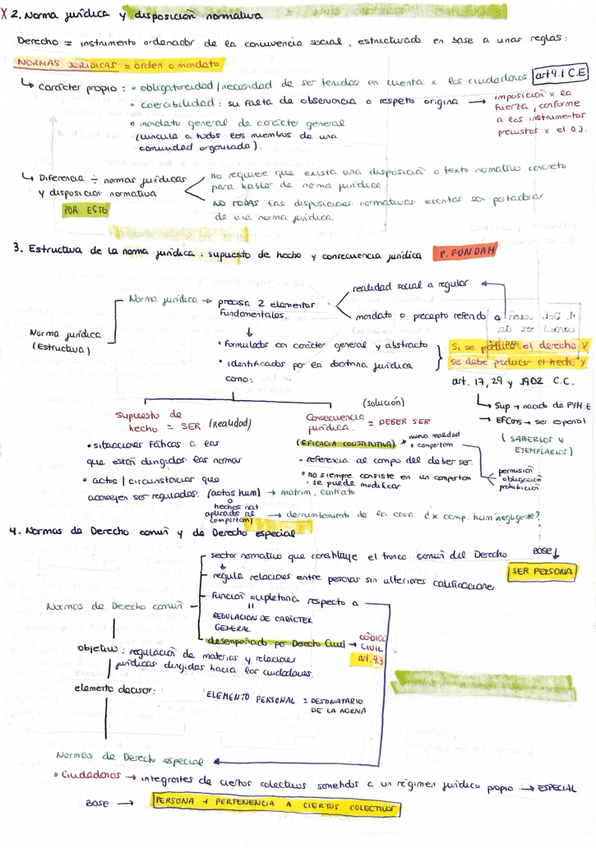 X 2. Norma jurídica y disposición normativa
Derecho = instrumento ordenador de la convivencia social, estructurado en base a unas reglas:
NORMAS JURÍDICAS = orden o mandato
↳ carácter propio: • obligatoriedad/necesidad de ser tenidos en cuenta x los ciudadanos art 9.1 C.E
• coercibilidad: su falta de observancia o respeto origina → imposición x la
fuerza, conforme
a los instrumentos
previstos x el O.J.
• mandato general de carácter general
(vincula a todos los miembros de una
comunidad organizada).
↳ Diferencia ÷ normas jurídicas
y disposición normativa
POR ESTO
no requiere que exista una disposición o texto normativo concreto
para hablar de norma jurídica
NO TODAS las disposiciones normativas escritas son portadoras
de una norma jurídica.
3. Estructura de la norma jurídica: supuesto de hecho y consecuencia jurídica P. FUNDAM
Norma jurídica
(Estructura)
Norma jurídica → precisa 2 elementos
fundamentales.
realidad social a regular
mandato o precepto referido a
• Formulados con carácter general y abstracto
• identificados por la doctrina jurídica
como:
Si se produce el derecho X
se debe producir el hecho Y
art. 17, 29 y 1902 C.C.
↳ Sup → nacido de P y M. E
→ EFCons → ser español
(SABERLOS Y
EJEMPLARIOS)
Supuesto de
hecho = SER (realidad)
• situaciones fáticas a las
que están dirigidas las normas
• actos / circunstancias que
aconsejen ser regulados. (actos hum) → matrim, contrato
o
hechos nat
aplicados al
comportam)
→ derrumbamiento de la casa d x comp. hum negligente?
(solución)
Consecuencia
jurídica. = DEBER SER
(EFICACIA CONSTITUTIVA) → nueva realidad
o comportam
• referencia al campo del deber ser.
• no siempre consiste en un comportam
• se puede modificar
permisión
obligación
prohibición
4. Normas de Derecho común y de Derecho especial
Normas de Derecho común
sector normativo que constituye el tronco común del Derecho BASE ↓
SER PERSONA
regula relaciones entre personas sin ulteriores calificaciones
Función supletoria respecto a
REGULACIÓN DE CARÁCTER
GENERAL
desempeñado por Derecho Civil → CÓDIGO
CIVIL
art. 4.3
objetivo: regulación de materias y relaciones
jurídicas dirigidas hacia los ciudadanos.
elemento decisor:
ELEMENTO PERSONAL = DESTINATARIO
DE LA NORMA
Normas de Derecho especial
• Ciudadanos → integrantes de ciertos colectivos sometidos a un régimen jurídico propio → ESPECIAL
BASE → PERSONA + PERTENENCIA A CIERTOS COLECTIVOS